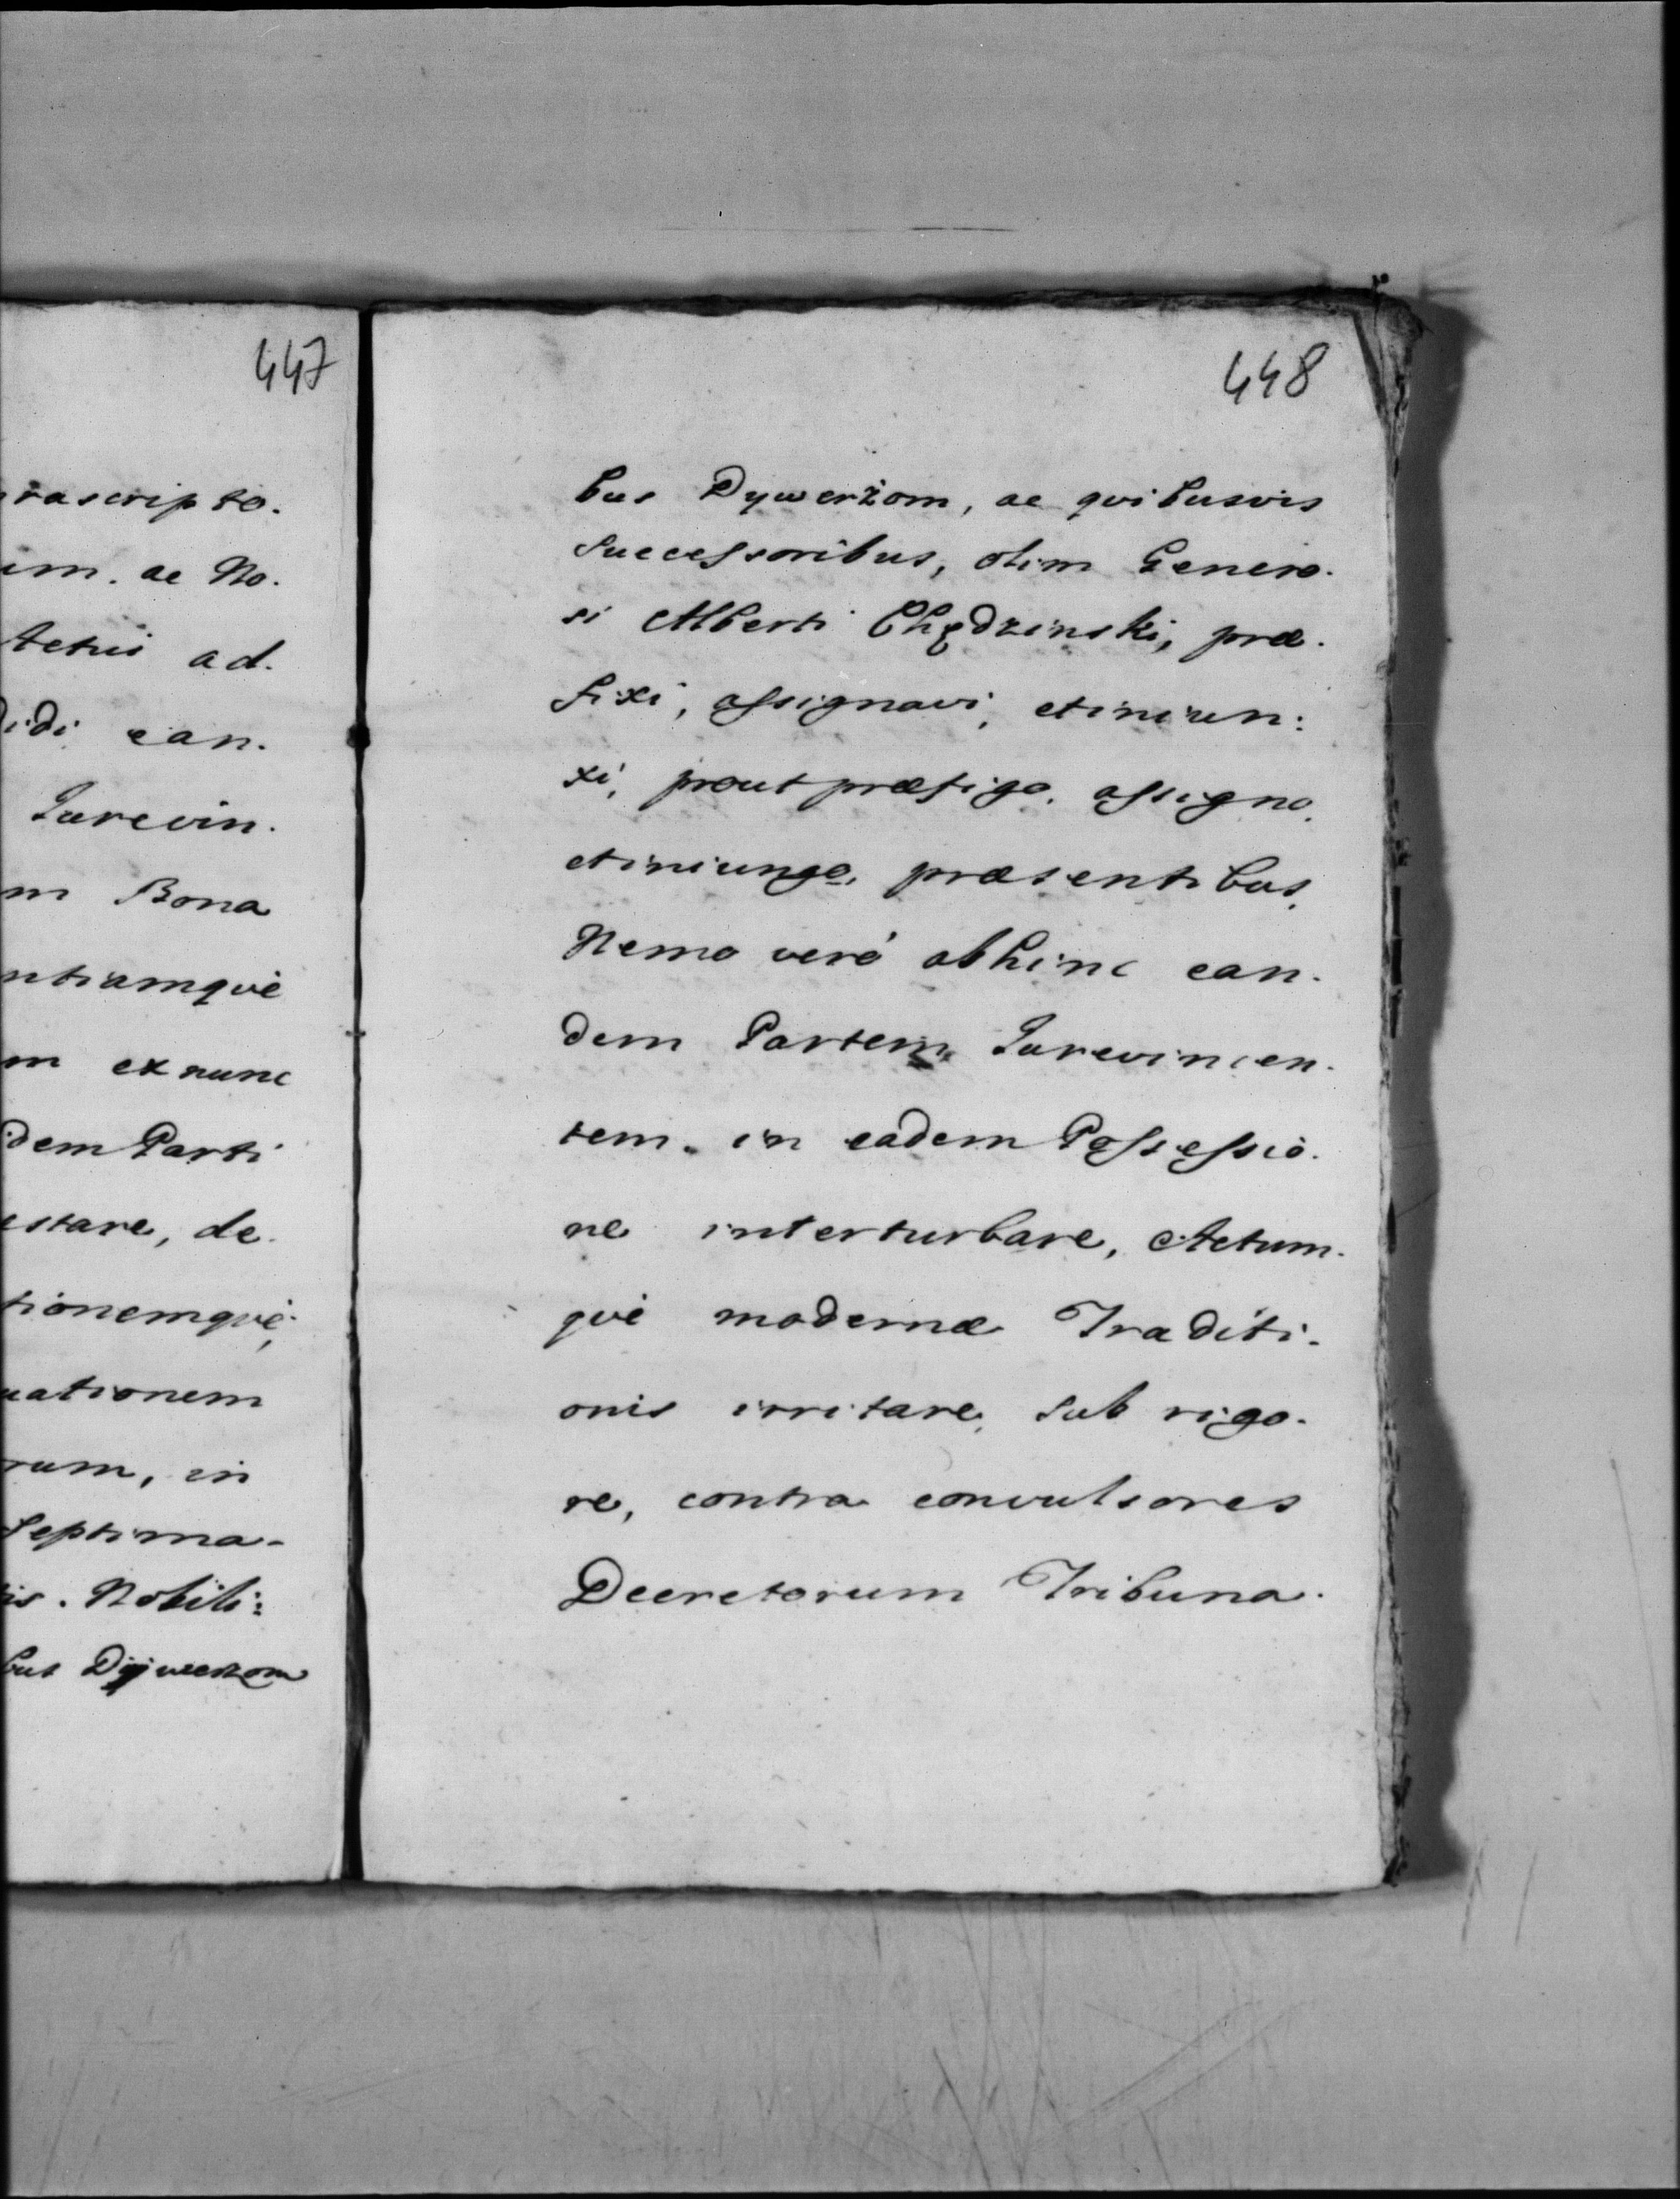 447
rascripto.
um. ac No.
Actui ad.
didi ean.
Iurevin.
m Bona
ntiamqvè
m exnunc
dem Parti
estare, de.
tionemqvè;
uationem
rum, in
Septima-
is. Nobili:
bus Dywerzom
448
bus Dywerżom, ac qvibusvis
Successoribus, olim Genero.
si Alberti Chądzinski, præ.
fixi, assignavi, etiniun:
xi, prout præfigo, assigno,
etiniungo, præsentibus,
Nemo verò abhinc ean.
dem Partem Iurevincen.
tem. in eadem Possessio.
ne interturbare, Actum.
qvè modernæ Traditi.
onis irritare, sub rigo.
re, contra convulsores
Decretorum Tribuna.